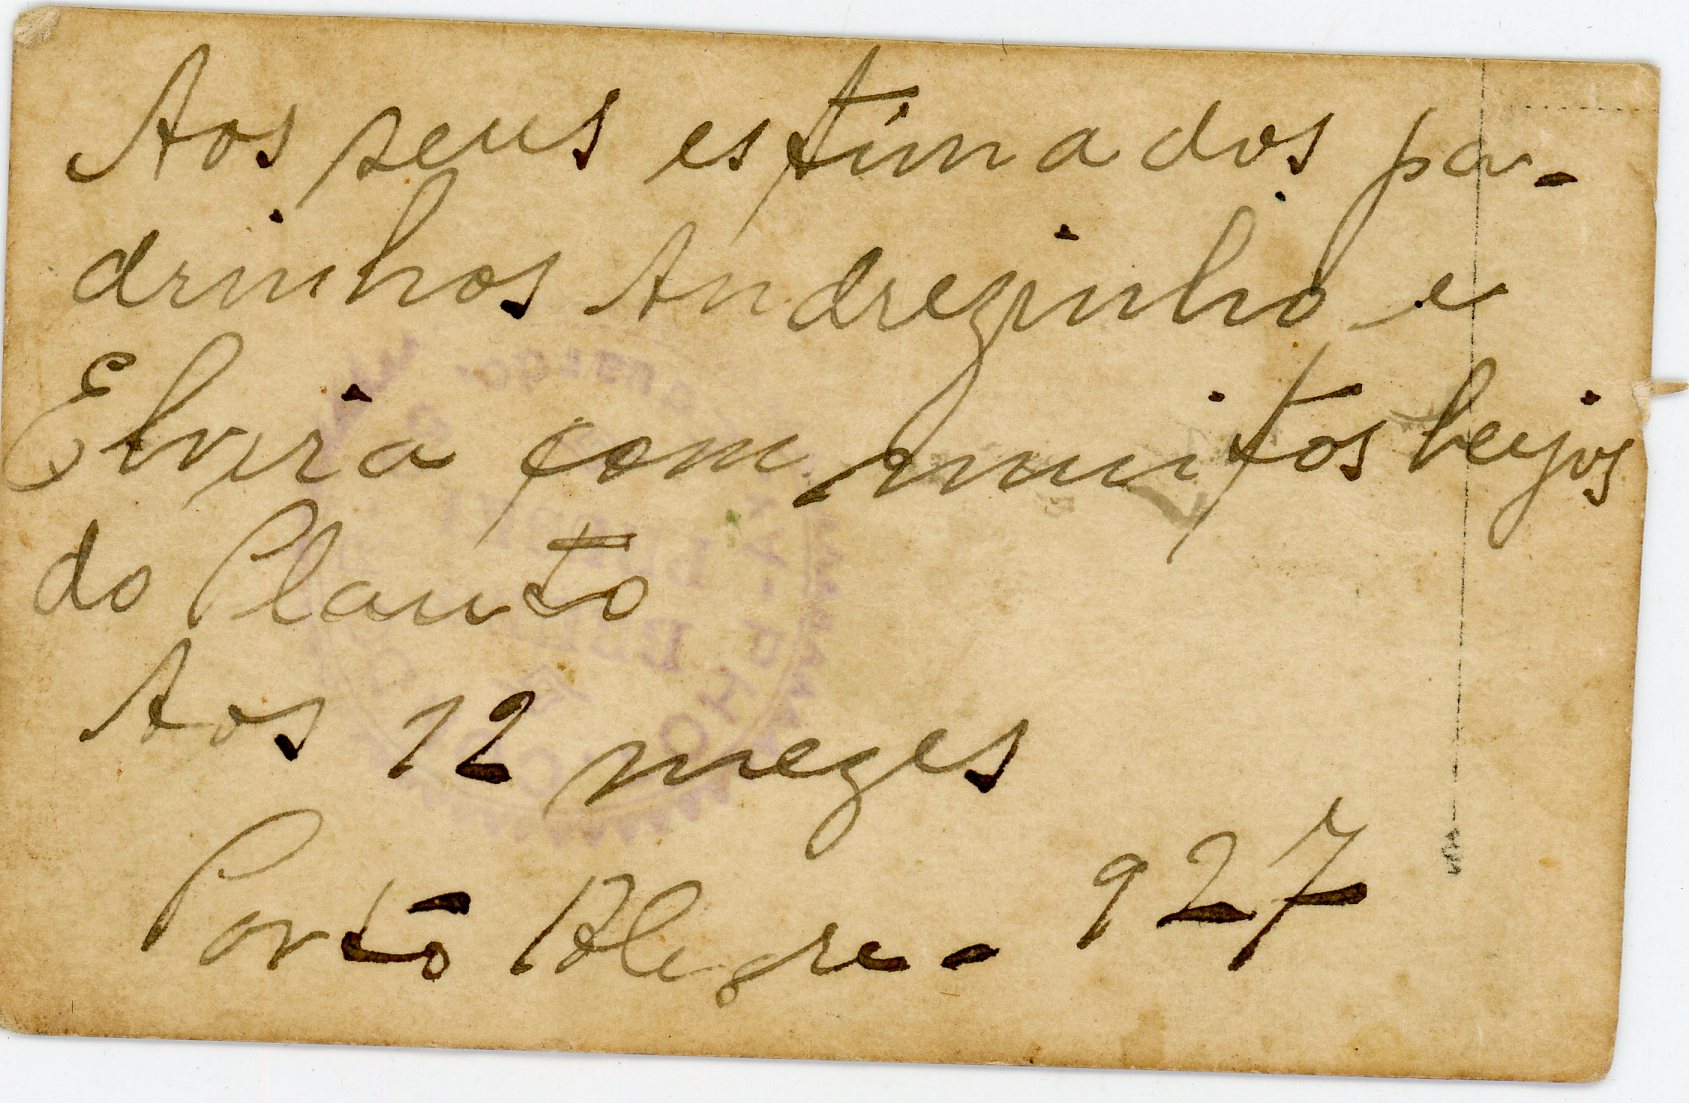 Aos seus estimados pa-
drinhos Andrezinho e
Elvira com muitos beijos
do Plauto
Aos 12 mezes
Porto Alegre - 927